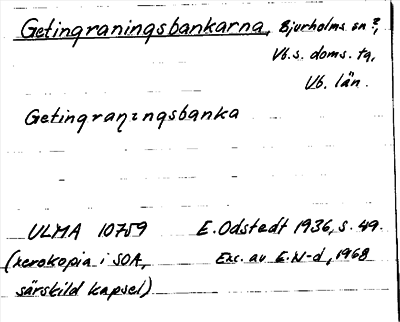 Getingraningsbankarna, Bjurholms sn?,
Vb.s. doms. tg,
Vb. län.
Getingranıngsbanka
ULMA 10759 E. Odstedt 1936, s. 49.
(xerokopia i SOA, Exc. av E.N-d, 1968
särskild kapsel)